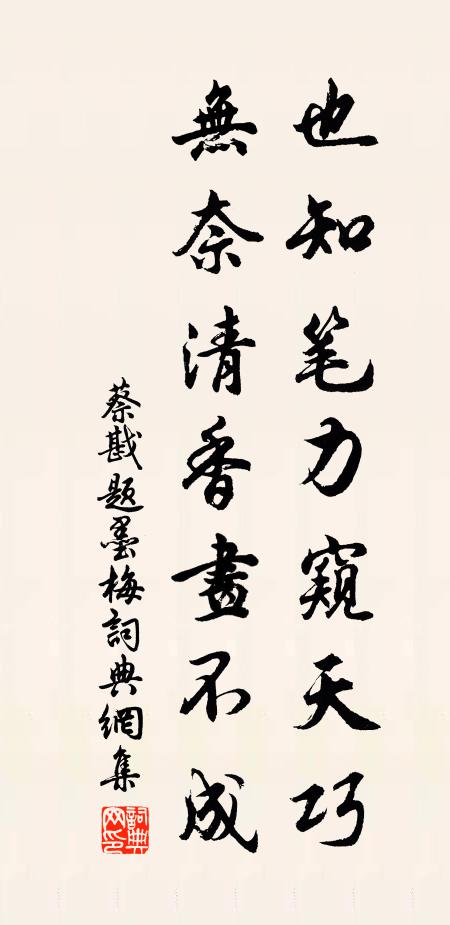 也知笔力窺天巧
無奈清香畫不成
蔡戡題墨梅詞典網集
詞典网印